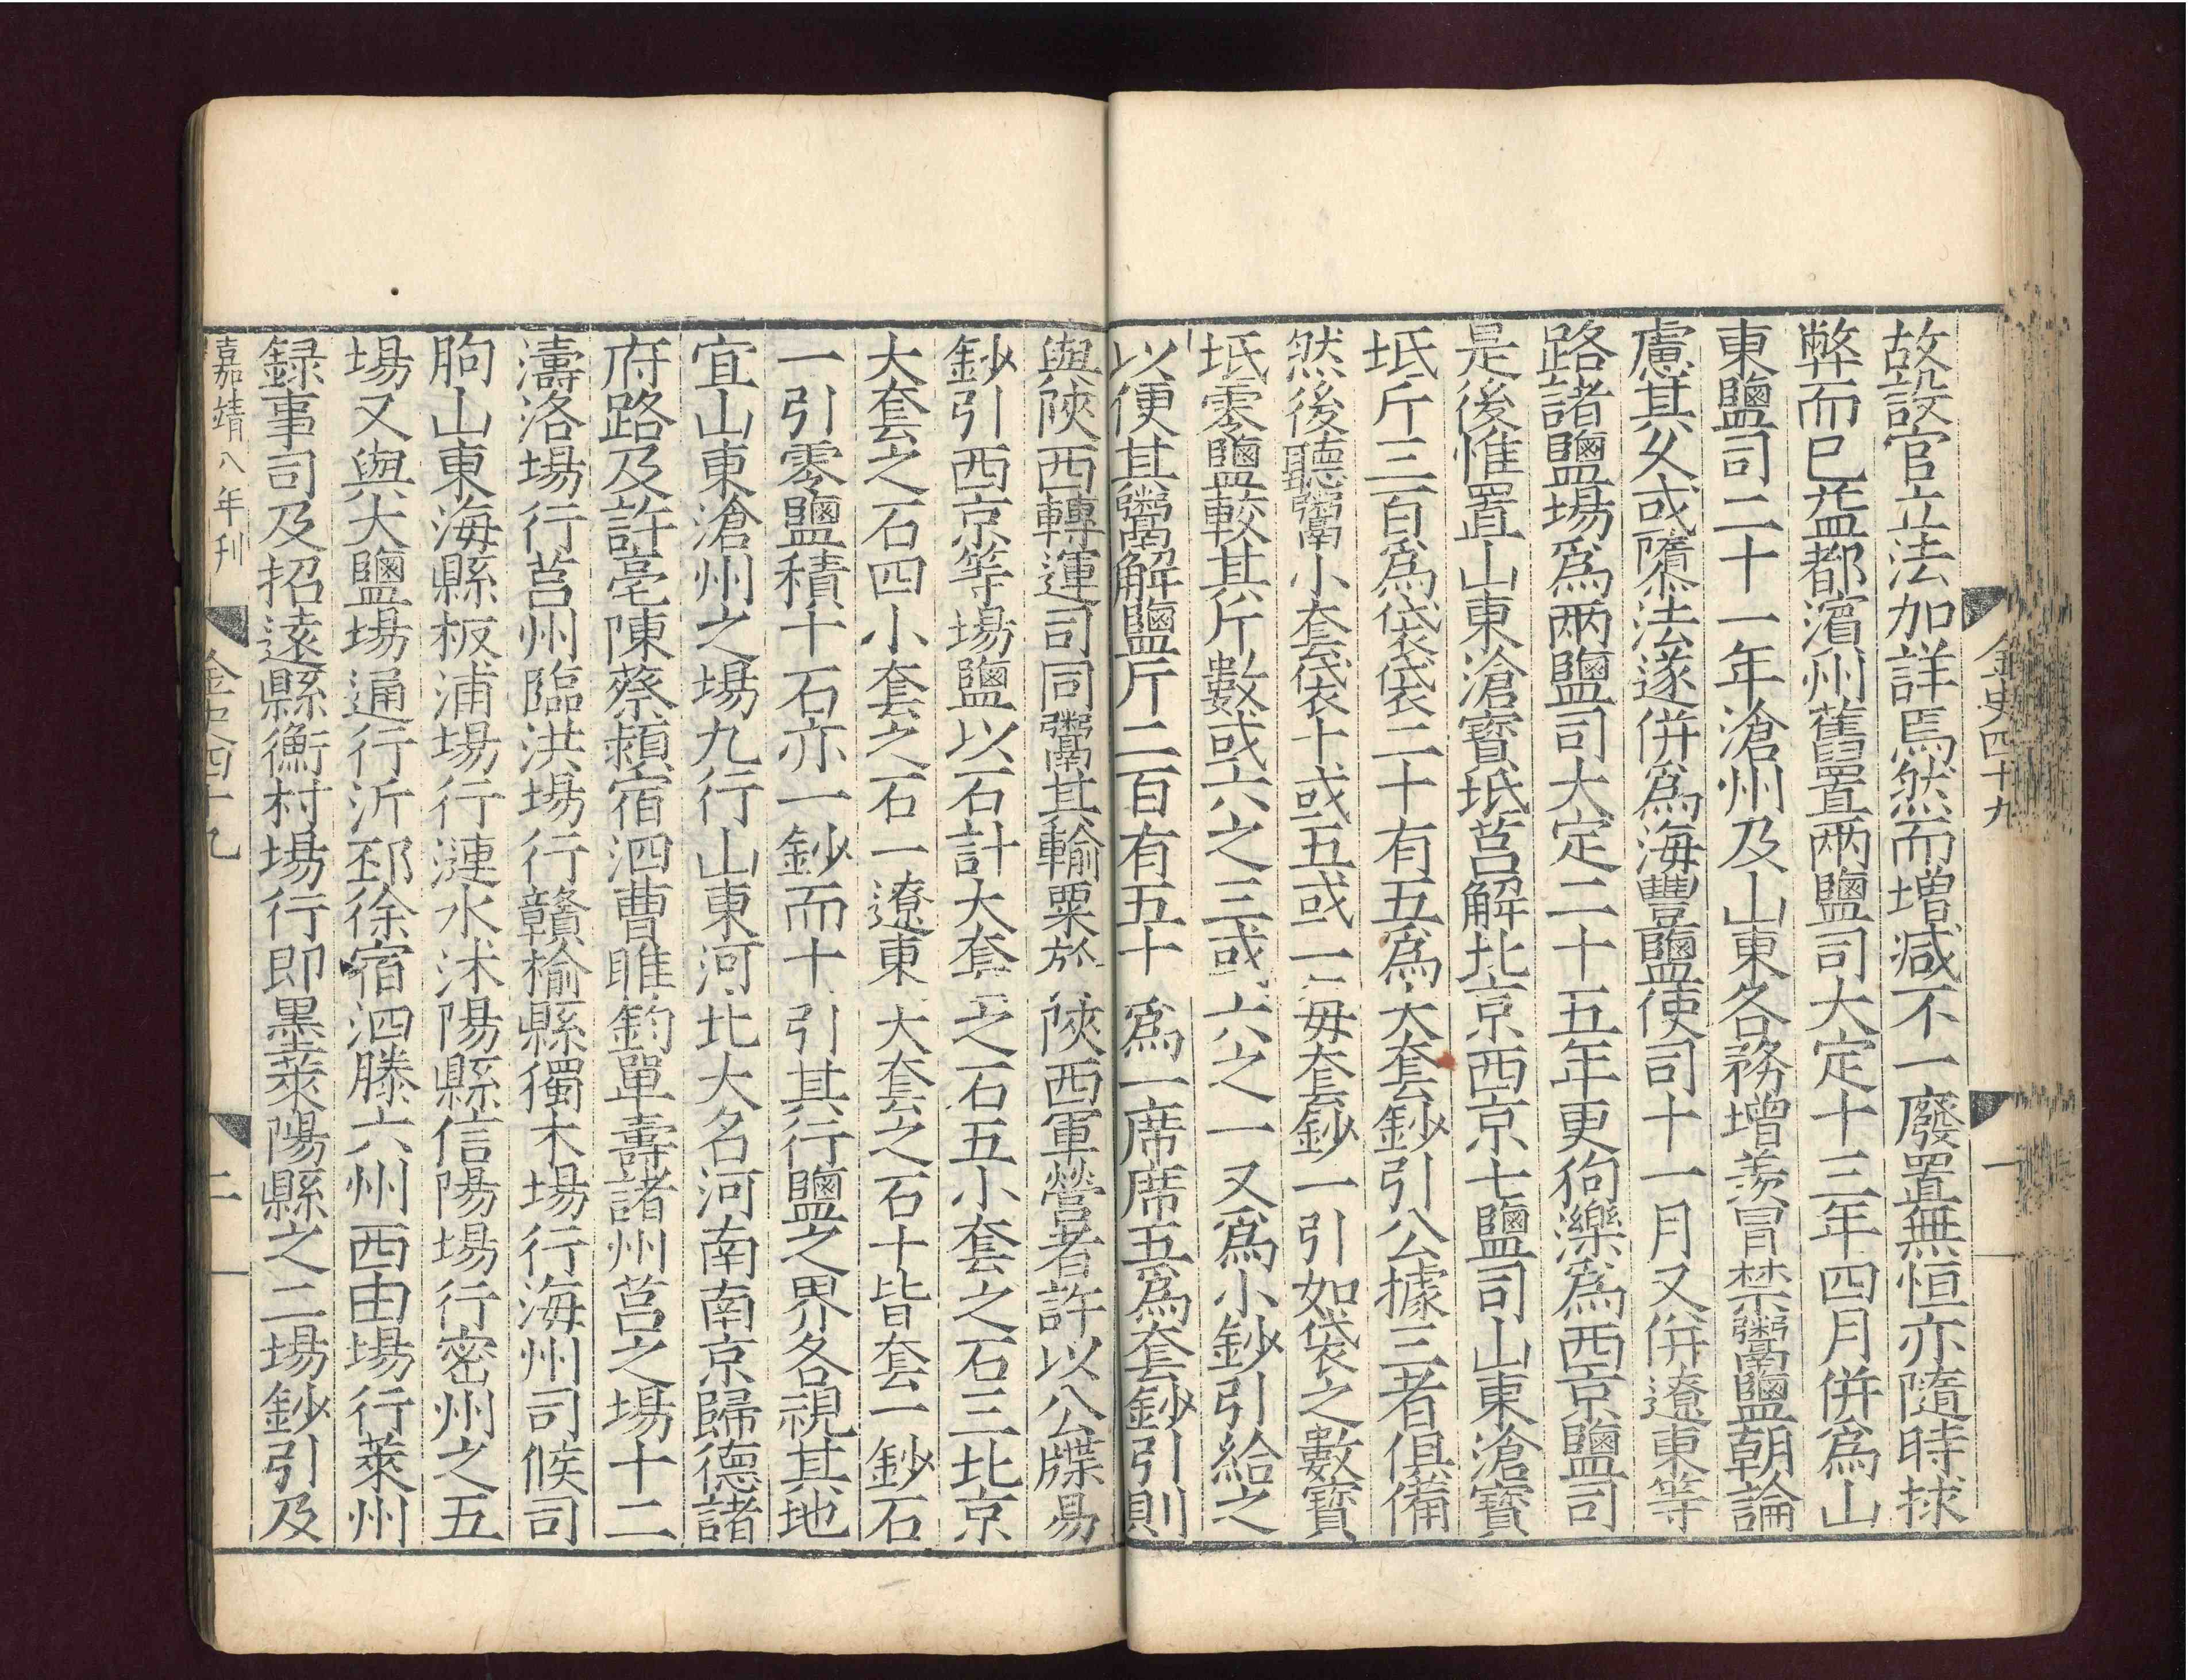 金史四十九
一
故設官立法加詳焉然而增減不一廢置無恒亦隨時捄
弊而已益都濱州舊置兩鹽司大定十三年四月併爲山
東鹽司二十一年滄州及山東各務增羨冒禁鬻鹽朝論
慮其久或隳法遂併爲海豐鹽使司十一月又併遼東等
路諸鹽場爲兩鹽司大定二十五年更狗濼爲西京鹽司
是後惟置山東滄寶坻莒解北京西京七鹽司山東滄寶
坻斤三百爲袋袋二十有五爲大套鈔引公據三者俱備
然後聽鬻小套袋十或五或一毋套鈔一引如袋之數寶
坻零鹽較其斤數或六之三或六之一又爲小鈔引給之
以便其鬻解鹽斤二百有五十爲一席席五爲套鈔引則
與陝西轉運司同鬻其輸粟於陝西軍營者許以公牒易
鈔引西京等場鹽以石計大套之石五小套之石三北京
大套之石四小套之石一遼東大套之石十皆套一鈔石
一引零鹽積十石亦一鈔而十引其行鹽之界各視其地
宜山東滄州之場九行山東河北大名河南南京歸德諸
府路及許亳陳蔡潁宿泗曹睢鈞單壽諸州莒之場十二
濤洛場行莒州臨洪場行贛榆縣獨木場行海州司候司
朐山東海縣板浦場行漣水沭陽縣信陽場行密州之五
場又與大鹽場通行沂邳徐宿泗滕六州西由場行萊州
録事司及招遠縣衡村場行即墨萊陽縣之二場鈔引及
嘉靖八年刊
金史四十九
二